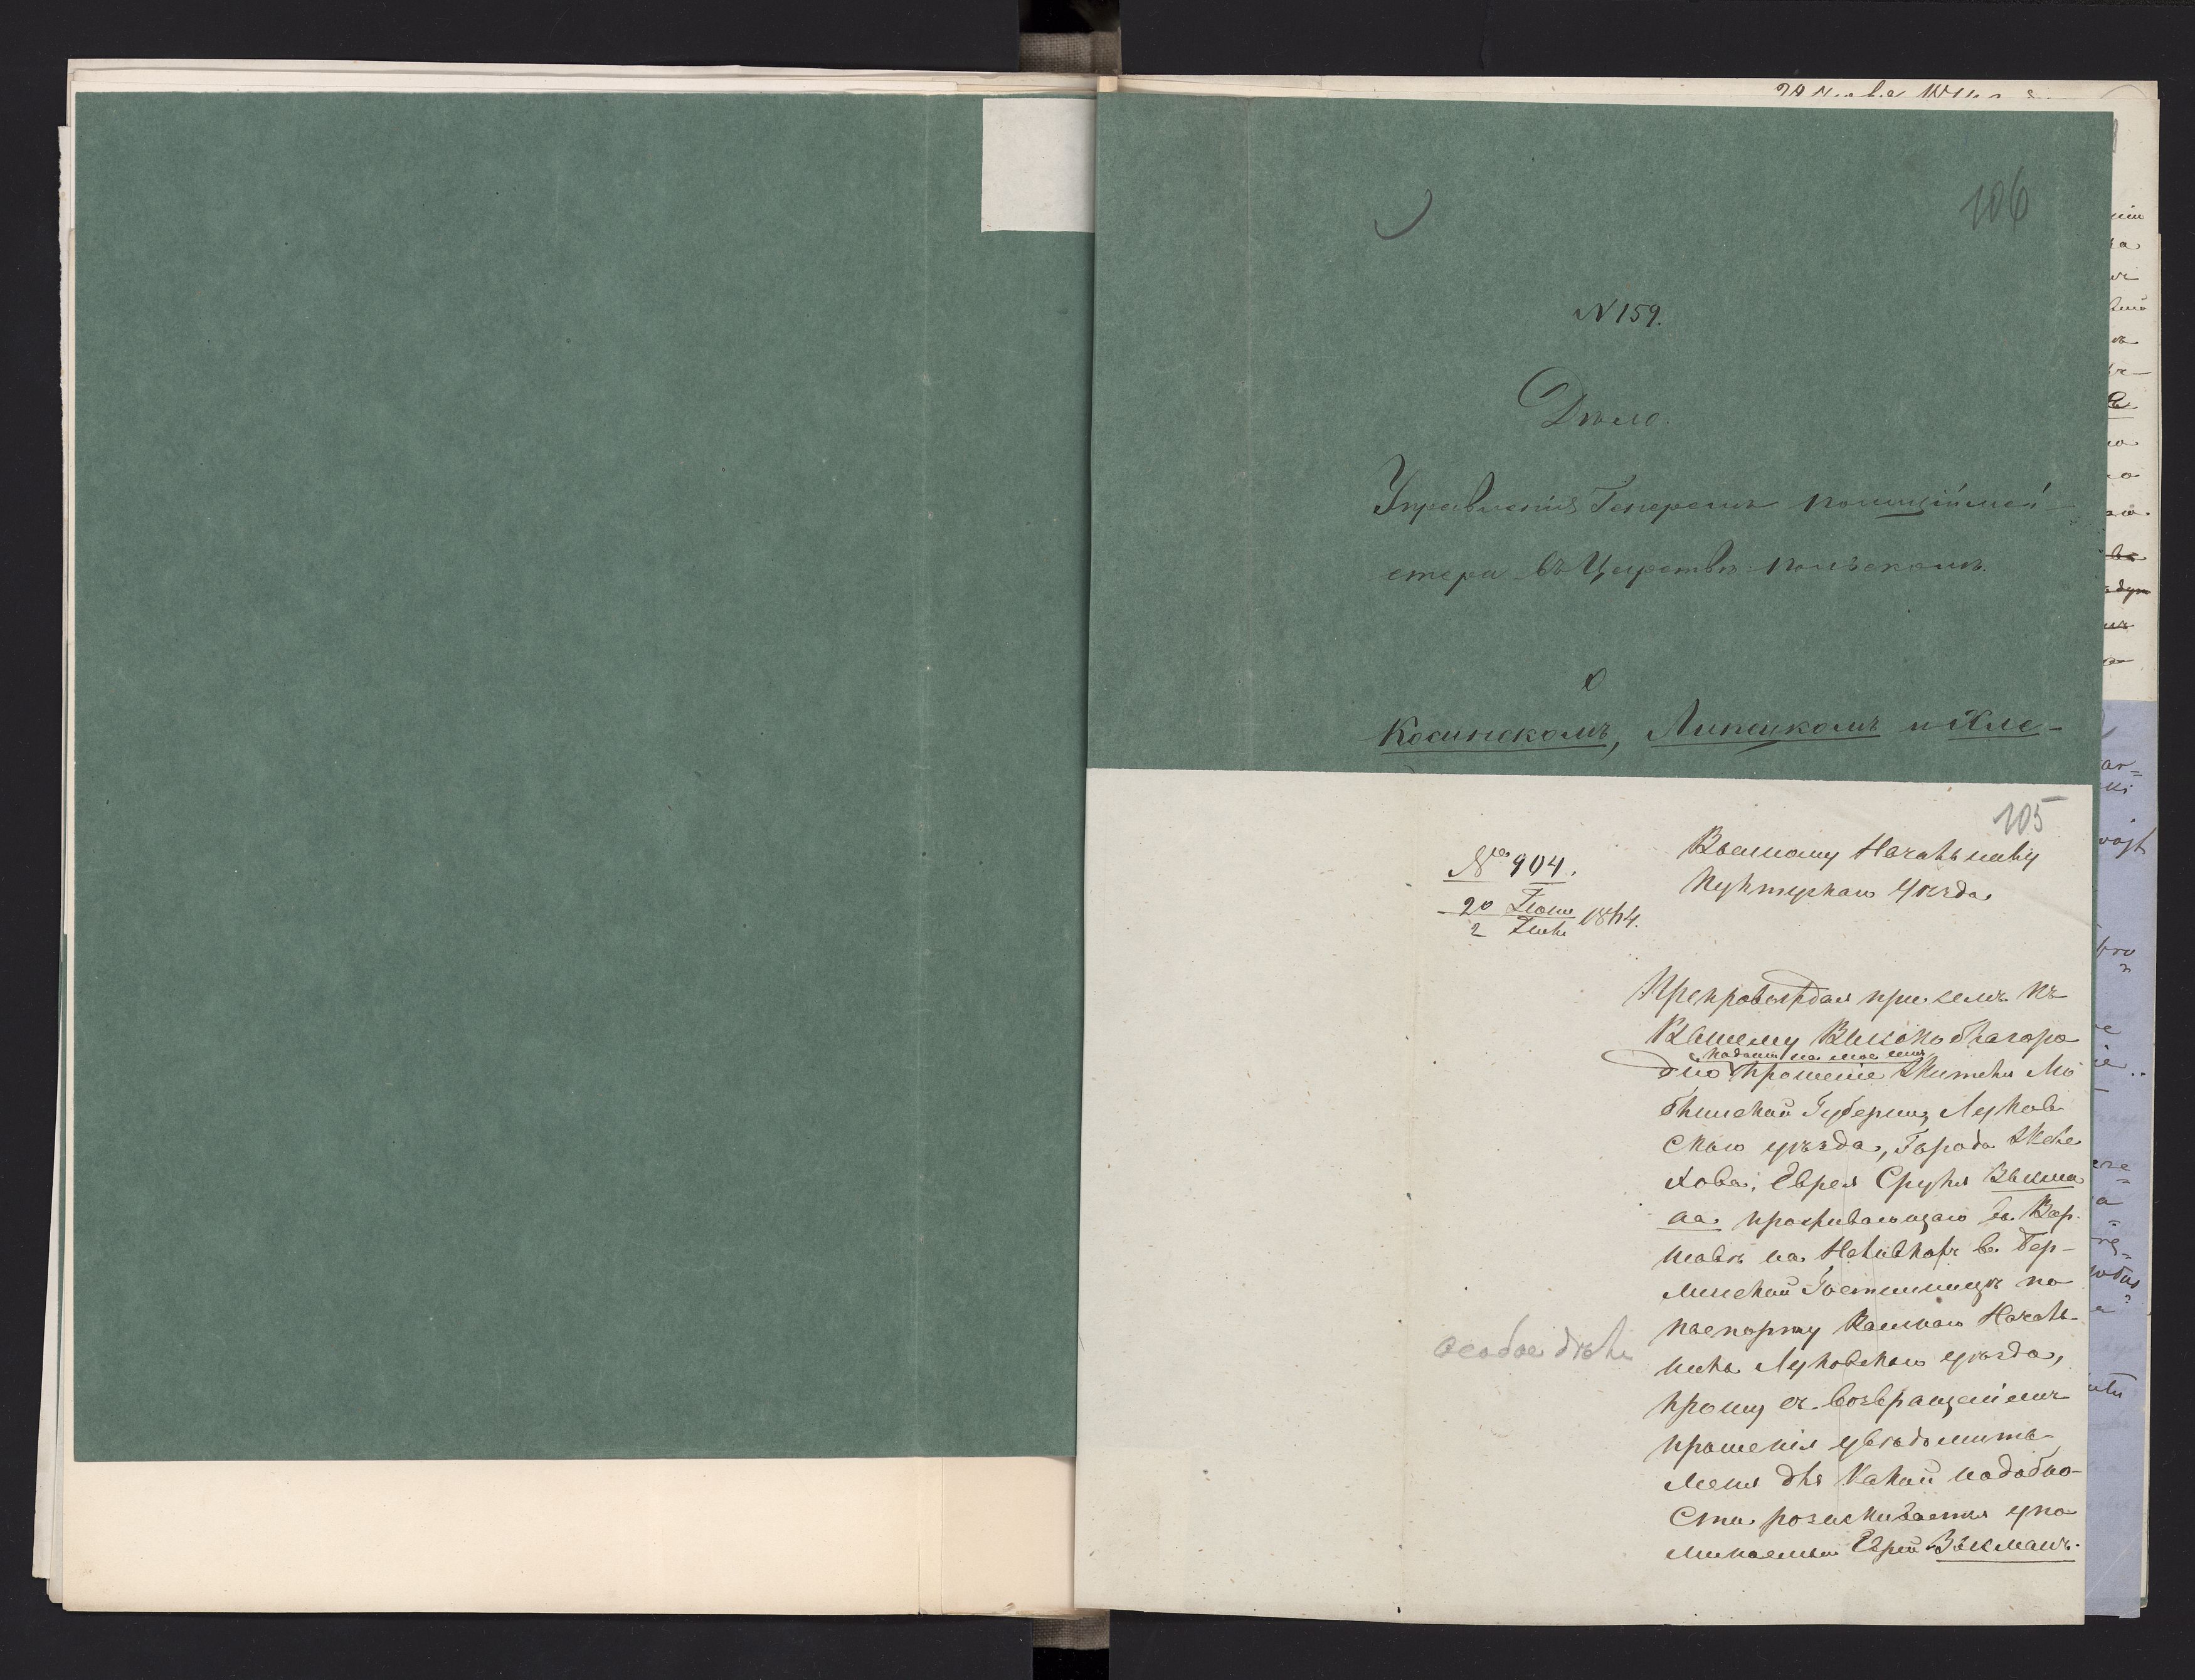 106
N 159.
Дѣло.
Управленія Генералъ полиціймей-
стера въ Царствѣ польскомъ.
о
Косинскомъ, Липецкомъ и Хле-
105
№ 904.
20 Іюня
2 Іюля 1864.
Военному Начальнику
Пултускаго Уѣзда
Препровождая при семъ къ
Вашему Высокоблагоро
поданн на мое имя
дію прошеніе Жителя Лю
блинской Губерніи, Луков
скаго уѣзда, Города Желе
хова, Еврея Сруля
проживающаго въ Вар
шавѣ на Налевкахъ въ Бер-
линской Гостинницѣ по
паспорту Военнаго Началь
ника Луковскаго уѣзда,
прошу съ возвращеніемъ
прошенія увѣдомить
меня для какой надобно-
сти розыскивается упо
минаемый Еврей
особое дѣло